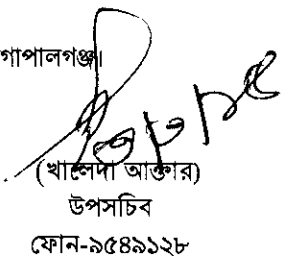 গোপালগঞ্জ।
(খালেদা আক্তার)
উপসচিব
ফোন-৯৫৪৯১২৮